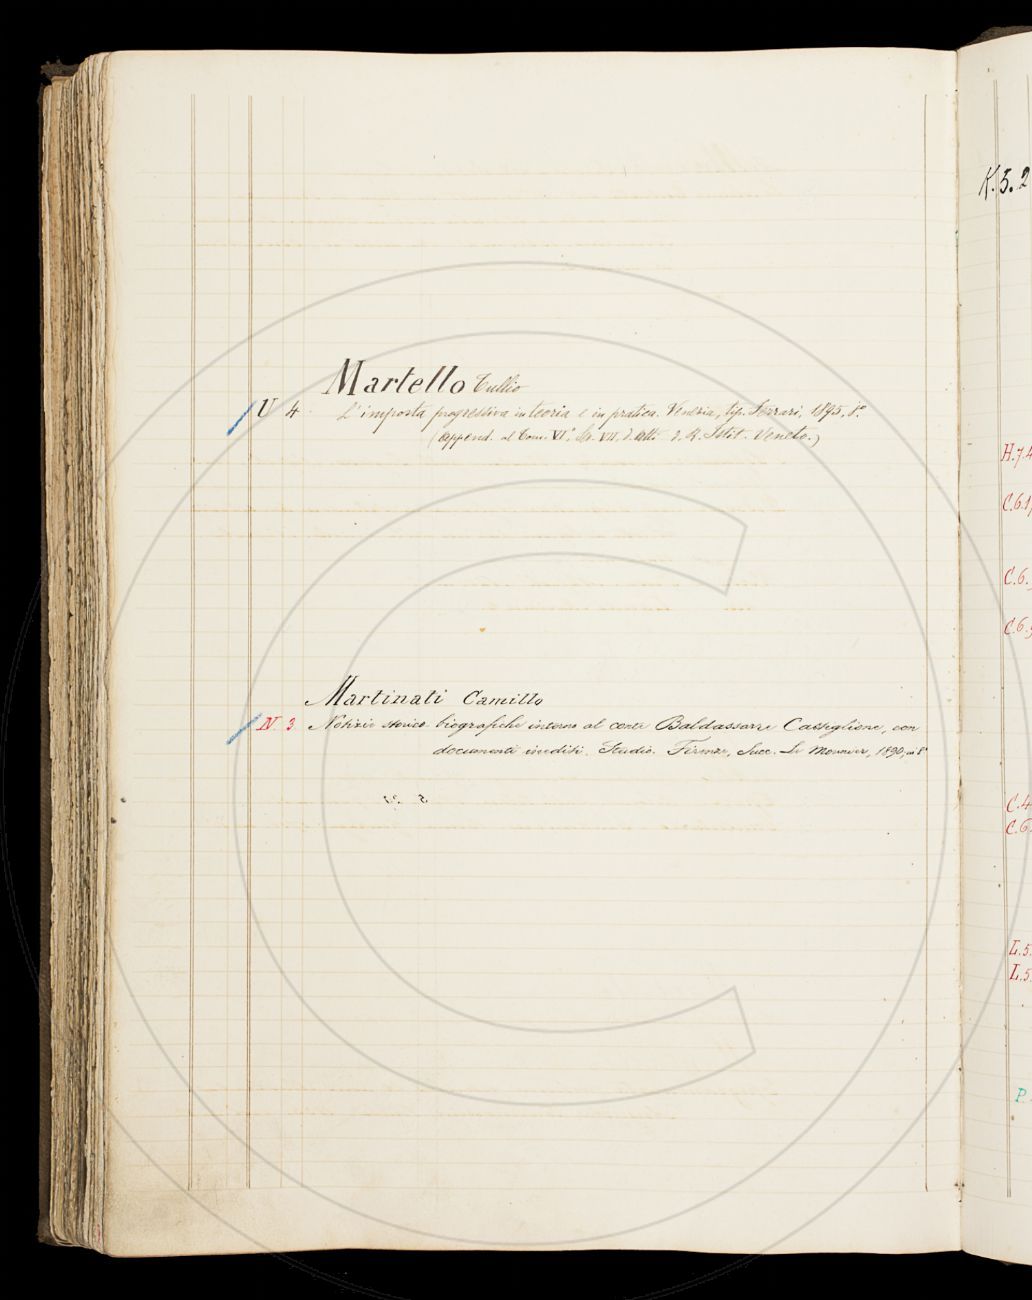 K. 5. 2
Martello Tullio
U 4. L'imposta progressiva in teoria e in pratica. Venezia, tip. Ferrari, 1895, 8°.
(Append. al Tom. VI° Ser. VII. d. Atti d. R. Istit. Veneto.)
H.7.4
C.6.
C.6.
C.6.
Martinati Camillo
N. 3 Notizie storico biografiche intorno al conte Baldassarre Castiglione, con
documenti inediti. Studio. Firenze, Succ. Le Monnier, 1890, in 8°
C.4
C.6.
L.5.
L.5.
P.